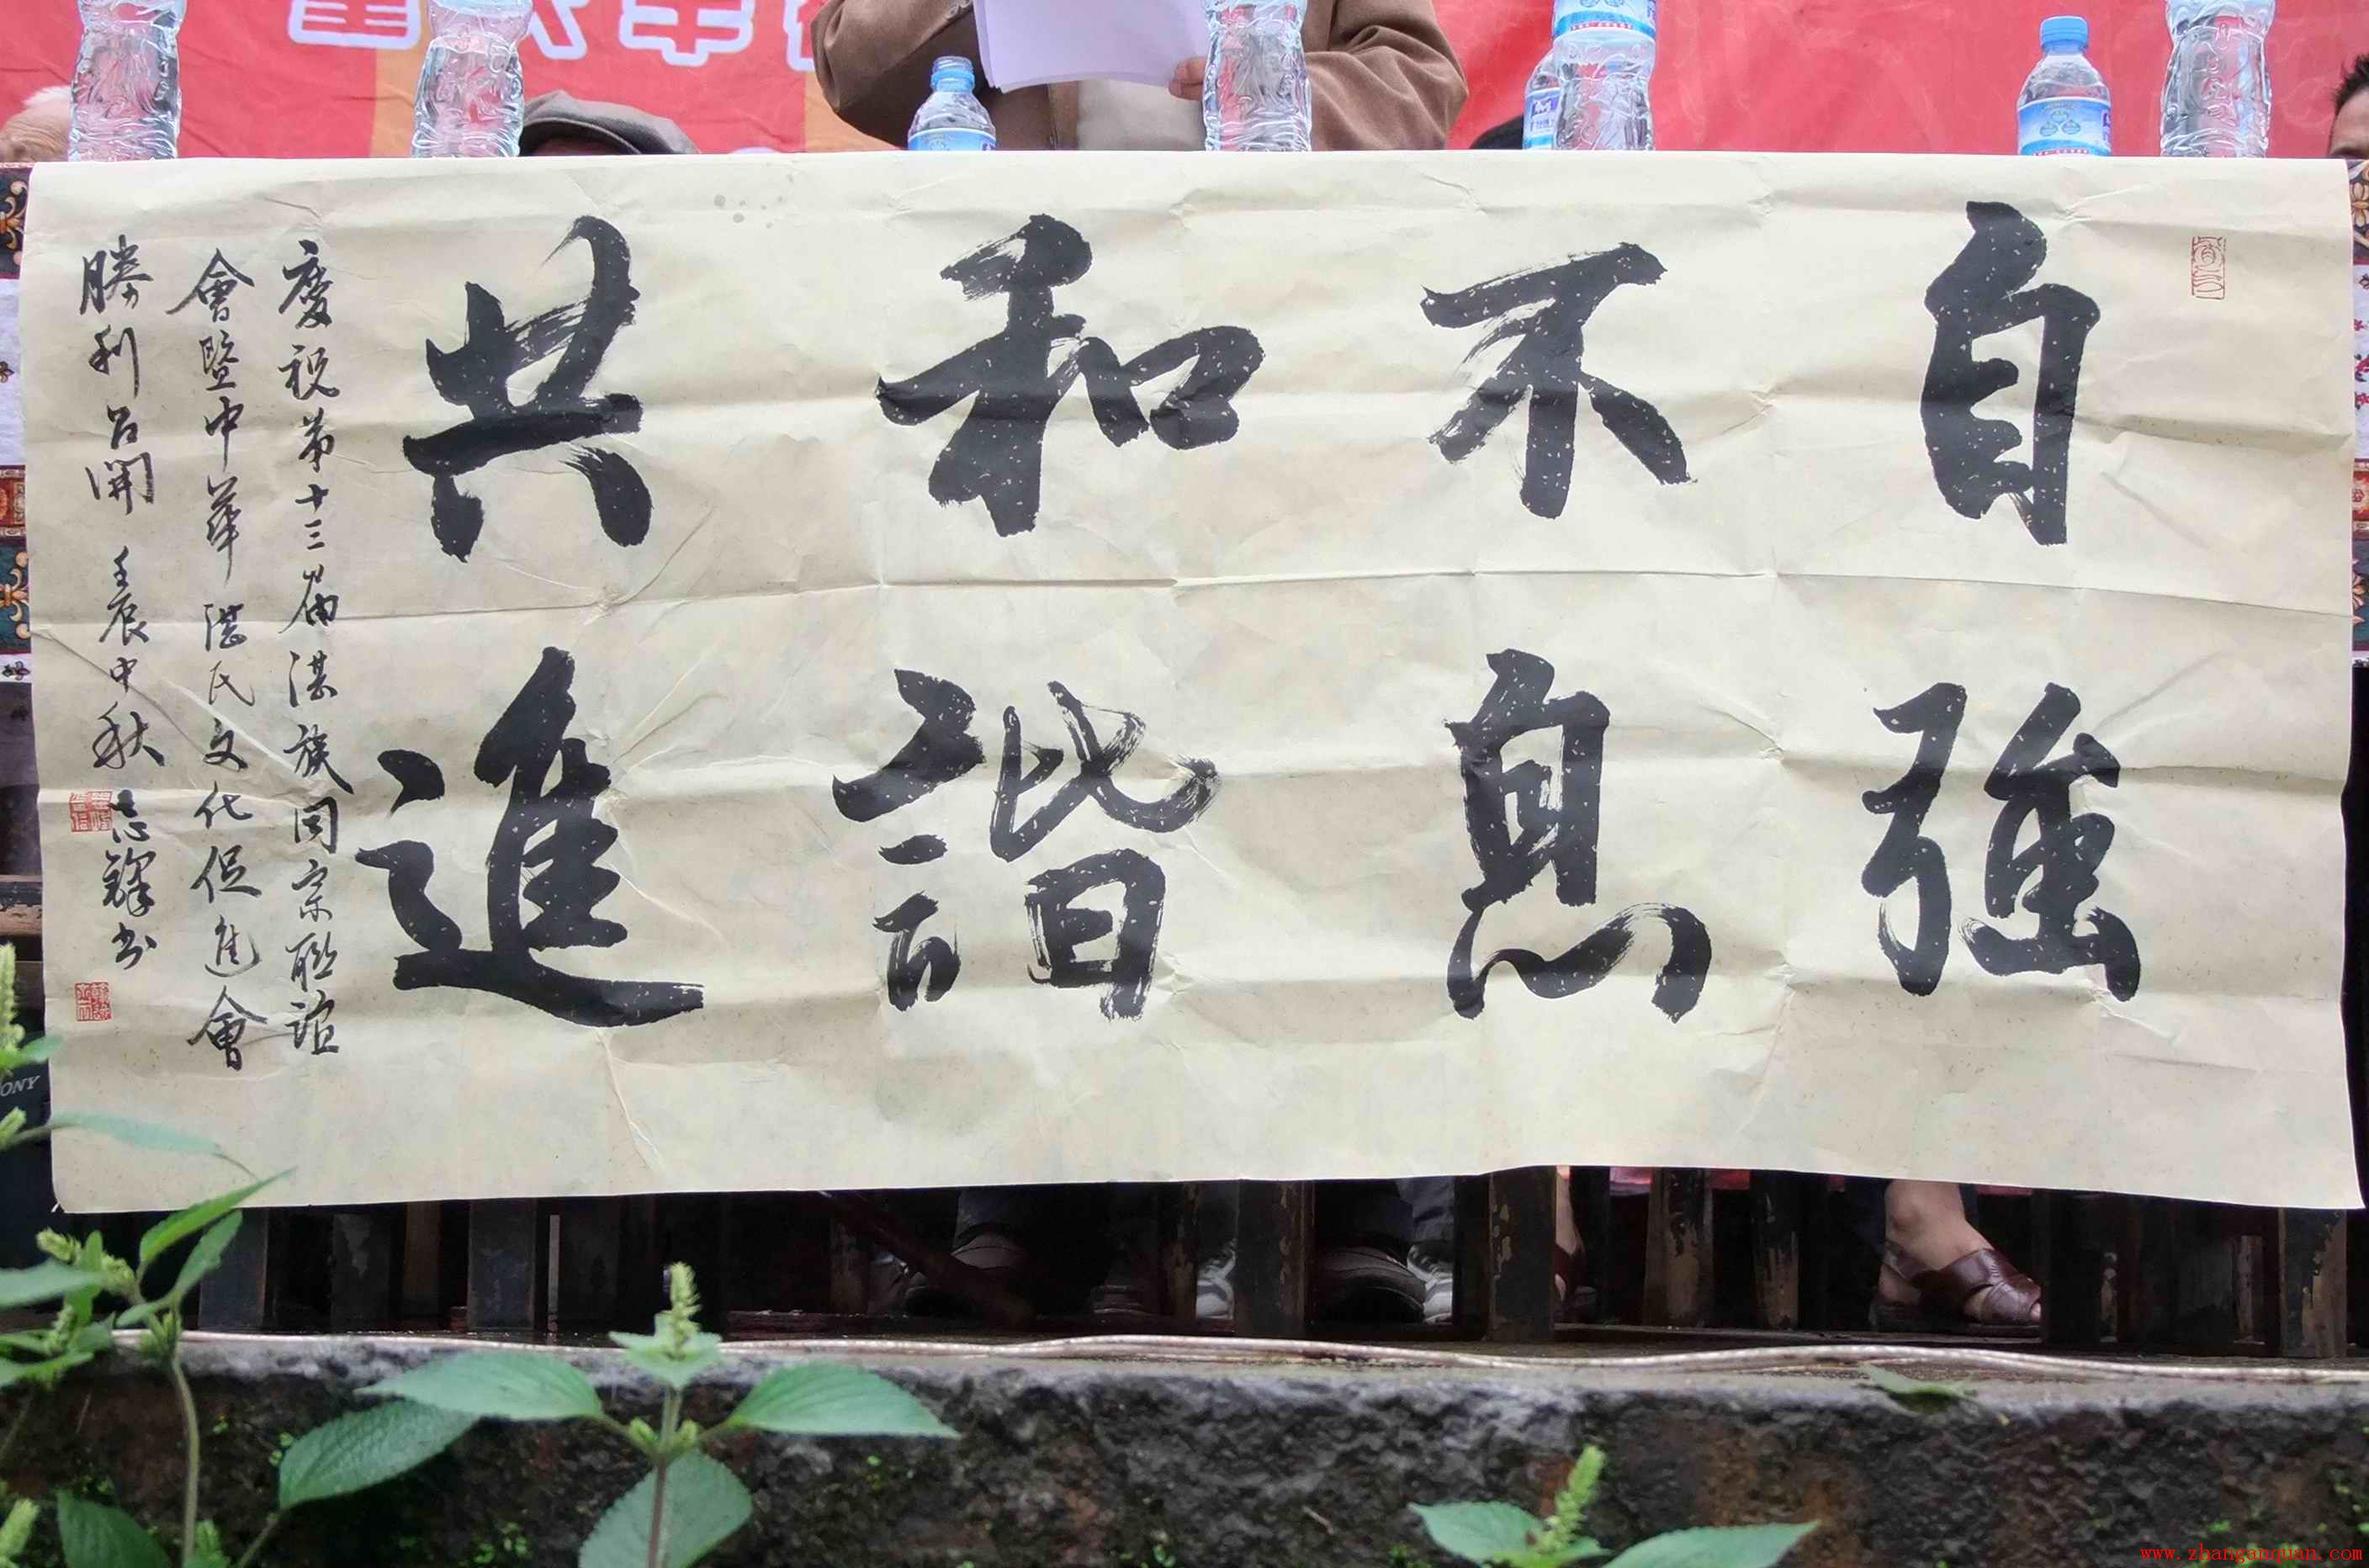 自強
不息
和諧
共進
慶祝第十三届湛族同宗聯誼
會暨中華湛氏文化促進會
勝利召開 壬辰中秋 志鐸書
www.zhanganquan.com